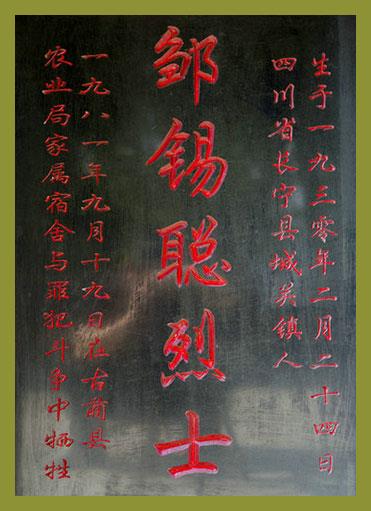 生于一九三零年二月二十四日
四川省长宁县城关镇人
邹锡聪烈士
一九八一年九月十九日在古蔺县
农业局家属宿舍与罪犯斗争中牺牲